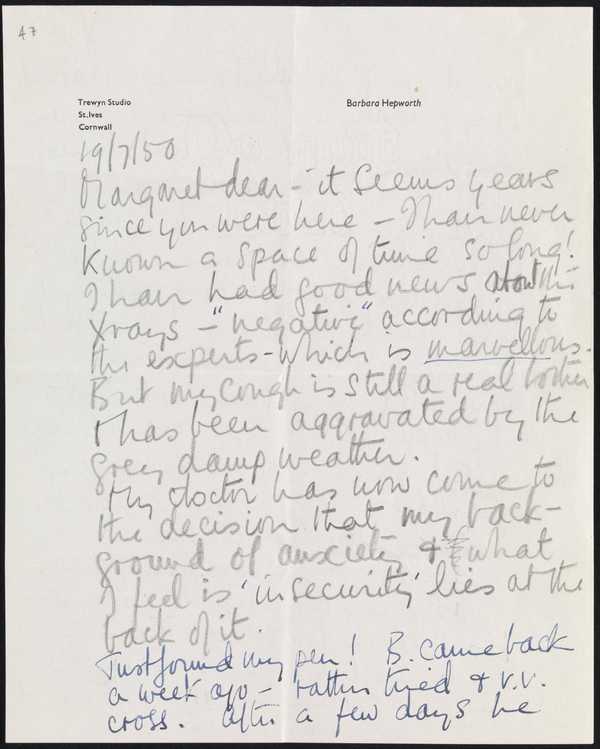 47
Trewyn Studio
St.Ives
Cornwall
Barbara Hepworth
19/7/50
Margaret dear – it seems years
since you were here – I have never
known a space of time so long!
I have had good news about the
Xrays – "negative" according to
the experts – which is marvellous.
But my cough is still a real bother
& has been aggravated by the
grey damp weather.
My doctor has now come to
the decision that my back-
ground of anxiety & what
I feel is 'insecurity' lies at the
back of it.
Just found my pen! B. came back
a week ago – rather tired & v.v.
cross. After a few days he